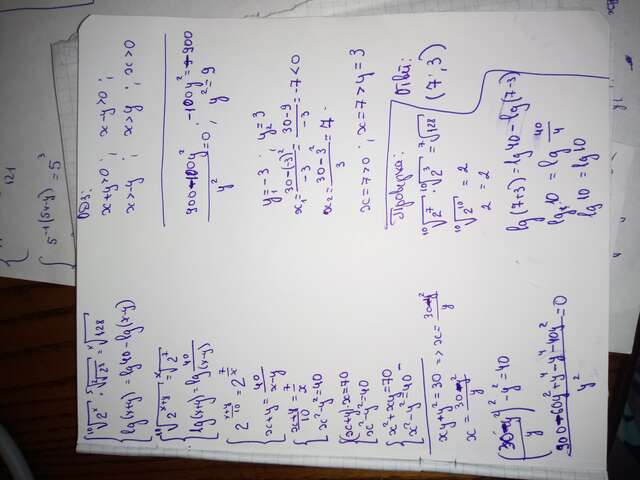 { ¹⁰√2ˣ · ⁵√√2^y = ˣ√128
lg(x+y) = lg40 - lg(x-y)
{ ¹⁰√2^(x+y) = ˣ√2⁷
lg(x+y) = lg 40/(x-y)
2^((x+y)/10) = 2^(7/x)
{ x+y = 40/(x-y)
(x+y)/10 = 7/x
{ x²-y²=40
{ (x+y)x=70
x²-y²=40
{ x²+xy=70
x²-y²=40
xy+y²=30 => x= (30-y²)/y
x= (30-y²)/y
((30-y²)/y)² - y²=40
(900-60y²+y⁴-y⁴-40y²)/y² =0
ОДЗ:
x+y>0; x-y>0;
x>-y; x>y; x>0
(900-100y²)/y² =0; -100y²=-900
y²=9
y₁=-3; y₂=3
x₁= (30-(-3)²)/-3 = (30-9)/-3 = -7<0
x₂= (30-3²)/3 = 7.
x=7>0; x=7>y=3
Проверка:
¹⁰√2⁷ · ¹⁰√2³ = ⁷√128
¹⁰√2¹⁰ = 2
2=2
lg(7+3)=lg40-lg(7-3)
lg10 = lg 40/4
lg10 = lg10
Отв:
(7; 3)
121
5^-1(5x-y) = 5³